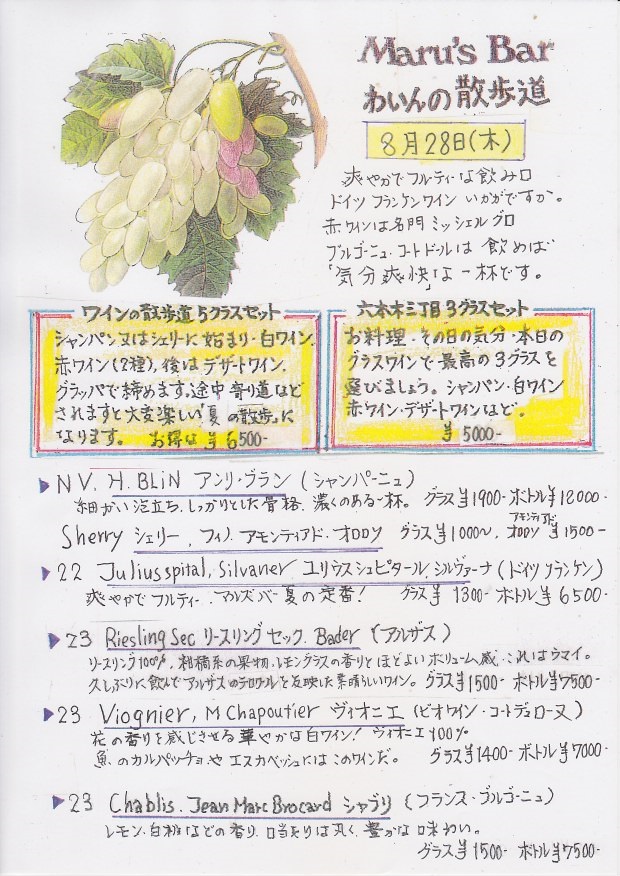 Maru's Bar
わいんの散歩道
8月28日(木)
爽やかでフルティーな飲み口
ドイツ フランケンワイン いかがですか。
赤ワインは名門 ミッシェルグロ
ブルゴーニュ・コートドールは 飲めば
「気分爽快」な一杯です。
ワインの散歩道5グラスセット
シャンパン又はシェリーに始まり・白ワイン、
赤ワイン(2種)、後はデザートワイン、
グラッパで締めます。途中 寄り道など
されますと大変楽しい「夏の散歩」に
なります。 お得な ¥6500-
六本木三丁目3グラスセット
お料理・その日の気分・本日の
グラスワインで最高の3グラスを
選びましょう。シャンパン・白ワイン
赤ワイン・デザートワインなど。
¥5000-
▶NV. H. BLiN アンリ・ブラン (シャンパーニュ)
細かい泡立ち、しっかりとした骨格、濃くのある一杯。グラス¥1900- ボトル¥12000-
Sherry シェリー、フィノ、アモンティアド・オロロソ グラス¥1000〜、アモンティアド オロロソ ¥1500-
▶22 Juliusspital, Silvaner ユリウスシュピタール、シルヴァーナ (ドイツ フランケン)
爽やかでフルティー、マルズバー夏の定番! グラス¥1300- ボトル¥6500-
▶23 Riesling Sec リースリング セック、Bader (アルザス)
リースリング100%、柑橘系の果物、レモングラスの香りとほどよいボリューム感、これはウマイ。
久しぶりに飲んでアルザスのテロワールを反映した素晴らしいワイン。グラス¥1500- ボトル¥7500-
▶23 Viognier, M Chapoutier ヴィオニエ (ビオワイン・コートデュローヌ)
花の香りを感じさせる華やかな白ワイン! ヴィオニエ100%
魚のカルパッチョやエスカベッシュにはこのワインだ。 グラス¥1400- ボトル¥7000-
▶23 Chablis. Jean Marc Brocard シャブリ (フランス・ブルゴーニュ)
レモン、白桃などの香り、口当たりは丸く、豊かな味わい。
グラス¥1500- ボトル¥7500-